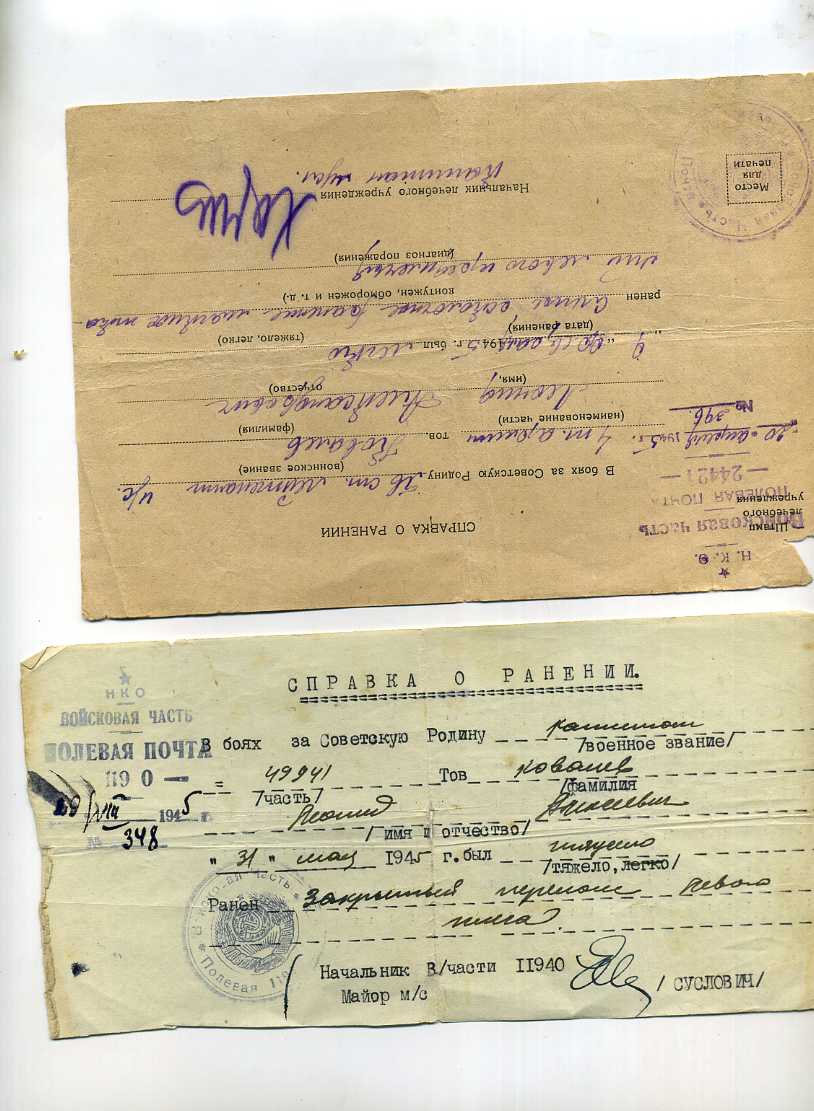 СПРАВКА О РАНЕНИИ
★
Н. К. О.
Штамп
лечебного
учреждения
Войсковая часть
ПОЛЕВАЯ ПОЧТА
— 24421 —
20 апреля 1945 г.
№ 396
В боях за Советскую Родину гв ст. лейтенант и/с.
(воинское звание)
4 тов. Ковалев
(наименование части) (фамилия)
Леонид
(имя, отчество)
1945 г. был легко
(дата ранения) (тяжело, легко)
ранен осколочное ранение
контужен, обморожен и т. д.
левого
(диагноз поражения)
Начальник лечебного учреждения
Капитан
Место
для
печати
★
НКО
ВОЙСКОВАЯ ЧАСТЬ
ПОЛЕВАЯ ПОЧТА
II9 0 —
1945 г.
№ 348
СПРАВКА О РАНЕНИИ.
В боях за Советскую Родину капитан
/военное звание/
49941 Тов Ковалев
/часть/ /фамилия
Леонид
/ имя и отчество/
" 31 " мая 1945 г. был тяжело
/тяжело, легко/
Ранен Закрытый перелом левого
Начальник В/части II940 / СУСЛОВИЧ/
Майор м/с
Полевая